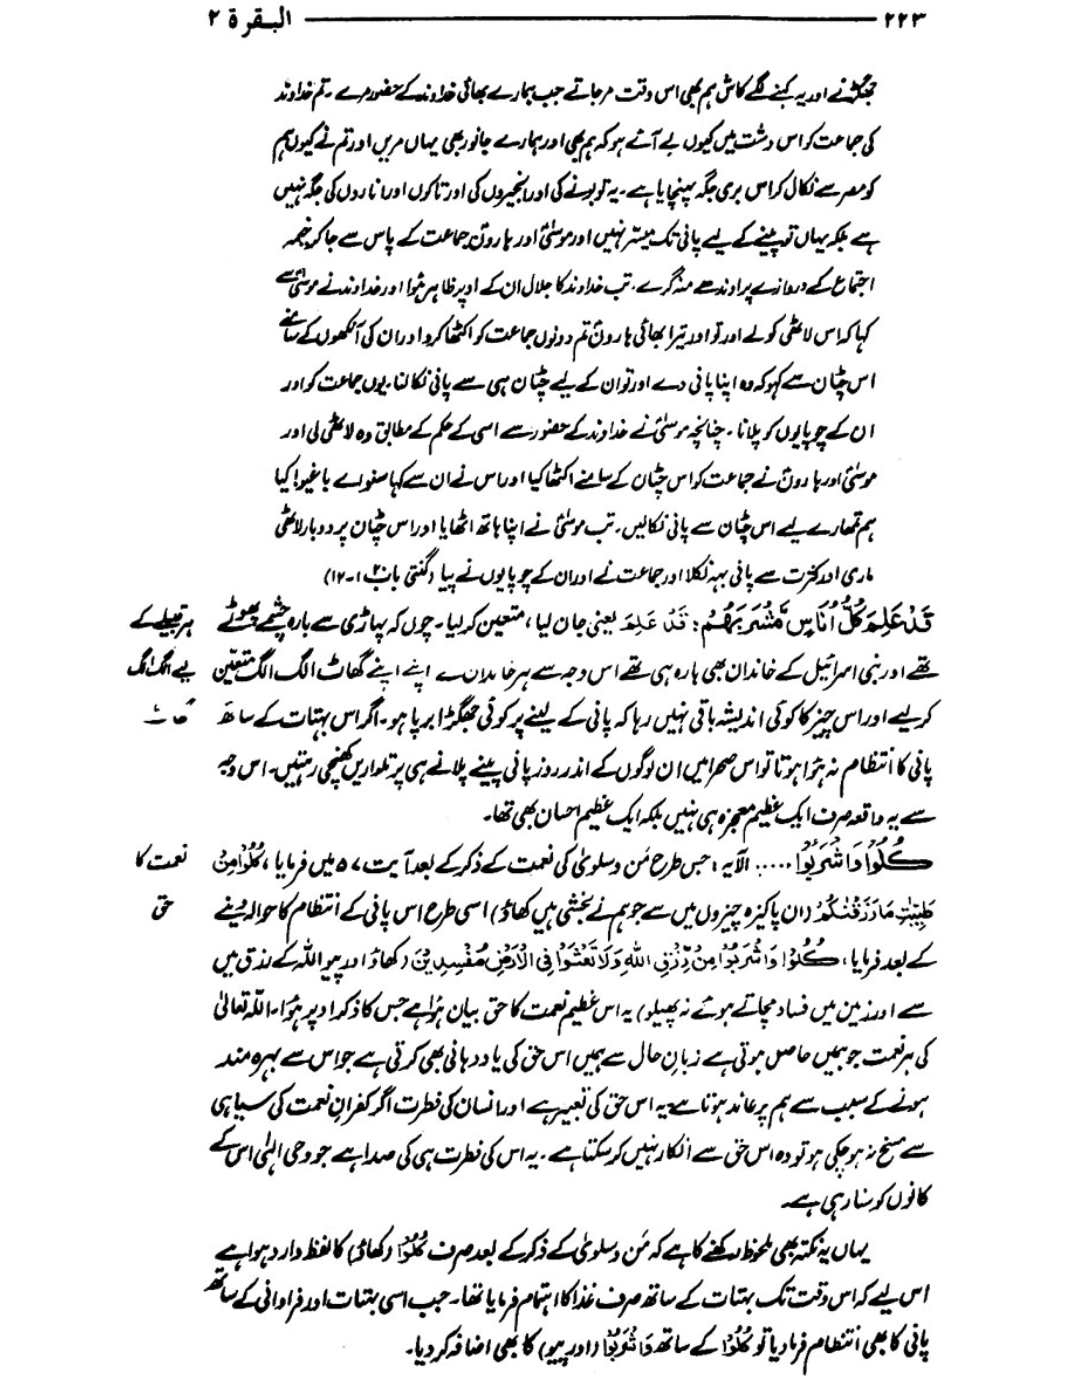 ۲۲۳ ——— البقرة ۲
جھگڑنے اور یہ کہنے لگے کاش ہم بھی اس وقت مر جاتے جب ہمارے بھائی خداوند کے حضور مرے۔ تم خداوند
کی جماعت کو اس دشت میں کیوں لے آئے ہو کہ ہم بھی اور ہمارے جانور بھی یہاں مریں اور تم نے کیوں ہم
کو مصر سے نکال کر اس بری جگہ پہنچایا ہے۔ یہ تو بونے کی اور انجیروں کی اور تاکوں اور اناروں کی جگہ نہیں
ہے بلکہ یہاں تو پینے کے لیے پانی تک میسر نہیں اور موسیٰؑ اور ہارونؑ جماعت کے پاس سے جا کر خیمہ
اجتماع کے دروازے پر اوندھے منہ گرے۔ تب خداوند کا جلال ان کے اوپر ظاہر ہوا اور خداوند نے موسیٰؑ سے
کہا کہ اس لاٹھی کو لے اور تو اور تیرا بھائی ہارونؑ تم دونوں جماعت کو اکٹھا کرو اور ان کی آنکھوں کے سامنے
اس چٹان سے کہو کہ وہ اپنا پانی دے اور تو ان کے لیے چٹان ہی سے پانی نکالنا۔ یوں جماعت کو اور
ان کے چوپایوں کو پلانا۔ چنانچہ موسیٰؑ نے خداوند کے حضور سے اسی کے حکم کے مطابق وہ لاٹھی لی اور
موسیٰؑ اور ہارونؑ نے جماعت کو اس چٹان کے سامنے اکٹھا کیا اور اس نے ان سے کہا سنو اے باغیو! کیا
ہم تمھارے لیے اس چٹان سے پانی نکالیں۔ تب موسیٰؑ نے اپنا ہاتھ اٹھایا اور اس چٹان پر دو بار لاٹھی
ماری اور کثرت سے پانی بہہ نکلا اور جماعت نے اور ان کے چوپایوں نے پیا (گنتی باب ۲۰: ۱-۱۲)
قَدْ عَلِمَ كُلُّ اُنَاسٍ مَّشْرَبَهُمْ: قَدْ عَلِمَ یعنی جان لیا، متعین کر لیا۔ چوں کہ پہاڑی سے بارہ چشمے پھوٹے ہر قبیلے کے
تھے اور بنی اسرائیل کے خاندان بھی بارہ ہی تھے اس وجہ سے ہر خاندان نے اپنے اپنے گھاٹ الگ الگ متعین لیے الگ الگ
کر لیے اور اس چیز کا کوئی اندیشہ باقی نہیں رہا کہ پانی کے لینے پر کوئی جھگڑا برپا ہو۔ اگر اس بہتات کے ساتھ گھاٹ
پانی کا انتظام نہ ہوا ہوتا تو اس صحرا میں ان لوگوں کے اندر روز پانی پینے پلانے ہی پر تلواریں کھنچی رہتیں۔ اس وجہ
سے یہ واقعہ صرف ایک عظیم معجزہ ہی نہیں بلکہ ایک عظیم احسان بھی تھا۔
كُلُوْا وَاشْرَبُوْا ..... الآیہ: جس طرح مَن و سلویٰ کی نعمت کے ذکر کے بعد آیت ۵۷ میں فرمایا، كُلُوْا مِنْ نعمت کا
طَيِّبٰتِ مَا رَزَقْنٰكُمْ (ان پاکیزہ چیزوں میں سے جو ہم نے بخشی ہیں کھاؤ) اسی طرح اس پانی کے انتظام کا حوالہ دینے حق
کے بعد فرمایا، كُلُوْا وَاشْرَبُوْا مِنْ رِّزْقِ اللّٰهِ وَلَا تَعْثَوْا فِي الْاَرْضِ مُفْسِدِيْنَ (کھاؤ اور پیو اللہ کے رزق میں
سے اور زمین میں فساد مچاتے ہوئے نہ پھیلو) یہ اس عظیم نعمت کا حق بیان ہوا ہے جس کا ذکر اوپر ہوا۔ اللہ تعالیٰ
کی ہر نعمت جو ہمیں حاصل ہوتی ہے زبانِ حال سے ہمیں اس حق کی یاد دہانی بھی کرتی ہے جو اس سے بہرہ مند
ہونے کے سبب سے ہم پر عائد ہوتا ہے یہ اس حق کی تعبیر ہے اور انسان کی فطرت اگر کفرانِ نعمت کی سیاہی
سے مسخ نہ ہو چکی ہو تو وہ اس حق سے انکار نہیں کر سکتا ہے۔ یہ اس کی فطرت ہی کی صدا ہے جو وحی الٰہی اس کے
کانوں کو سنا رہی ہے۔
یہاں یہ نکتہ بھی ملحوظ رکھنے کا ہے کہ مَن و سلویٰ کے ذکر کے بعد صرف كُلُوْا (کھاؤ) کا لفظ وارد ہوا ہے
اس لیے کہ اس وقت تک بہتات کے ساتھ صرف غذا کا اہتمام فرمایا تھا۔ جب اسی بہتات اور فراوانی کے ساتھ
پانی کا بھی انتظام فرما دیا تو كُلُوْا کے ساتھ وَاشْرَبُوْا (اور پیو) کا بھی اضافہ کر دیا۔